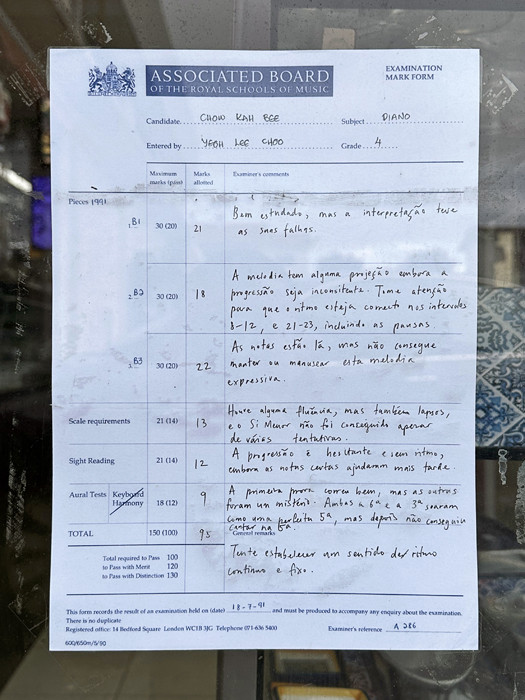 ASSOCIATED BOARD
OF THE ROYAL SCHOOLS OF MUSIC
EXAMINATION
MARK FORM
Candidate CHOW KAH BEE Subject PIANO
Entered by YEOH LEE CHOO Grade 4
Maximum marks (pass) Marks allotted Examiner's comments
Pieces 1991
1. B1 30 (20) 21 Bem estudado, mas a interpretação teve
as suas falhas.
2. B2 30 (20) 18 A melodia tem alguma projeção embora a
progressão seja inconsitente. Tome atenção
para que o ritmo esteja correcto nos intervalos
8-12, e 21-23, incluindo as pausas.
3. B3 30 (20) 22 As notas estão lá, mas não consegue
manter ou manusear esta melodia
expressiva.
Scale requirements 21 (14) 13 Houve alguma fluência, mas também lapsos,
e o Si Menor não foi conseguido apesar
de várias tentativas.
Sight Reading 21 (14) 12 A progressão é hesitante e sem ritmo,
embora as notas certas ajudaram mais tarde.
Aural Tests Keyboard Harmony 18 (12) 9 A primeira prova correu bem, mas as outras
foram um mistério. Ambas a 6ª e a 3ª soaram
como uma perfeita 5ª, mas depois não conseguiu
cantar na 5ª.
TOTAL 150 (100) 95 General remarks
Total required to Pass 100
to Pass with Merit 120
to Pass with Distinction 130
Tente estabelecer um sentido de ritmo
contínuo e fixo.
This form records the result of an examination held on (date) 18-7-91 and must be produced to accompany any enquiry about the examination.
There is no duplicate
Registered office: 14 Bedford Square London WC1B 3JG Telephone 071-636 5400 Examiner's reference A 286
600/650m/5/90